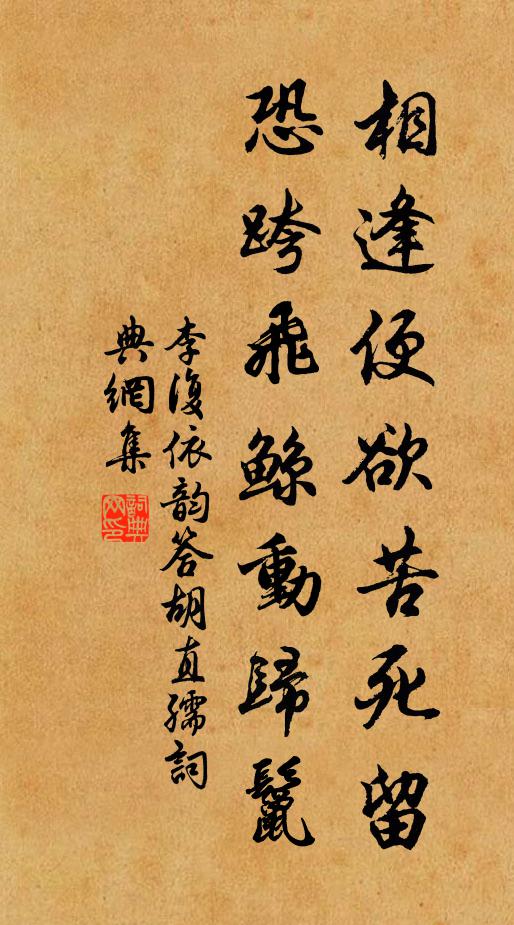 相逢便欲苦死留
恐跨飛鯨動歸鬣
李復依韵答胡直孺詞
典網集
詞典网印